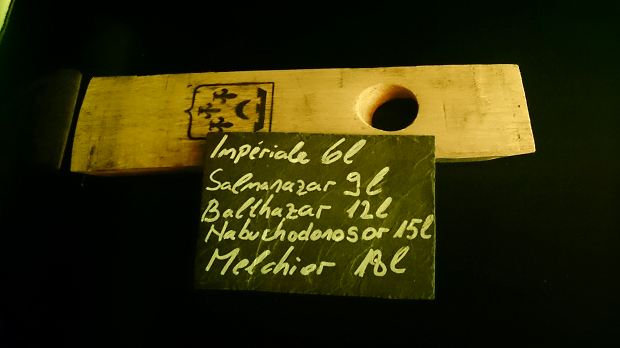 Impériale 6l
Salmanazar 9l
Balthazar 12l
Nabuchodonosor 15l
Melchior 18l